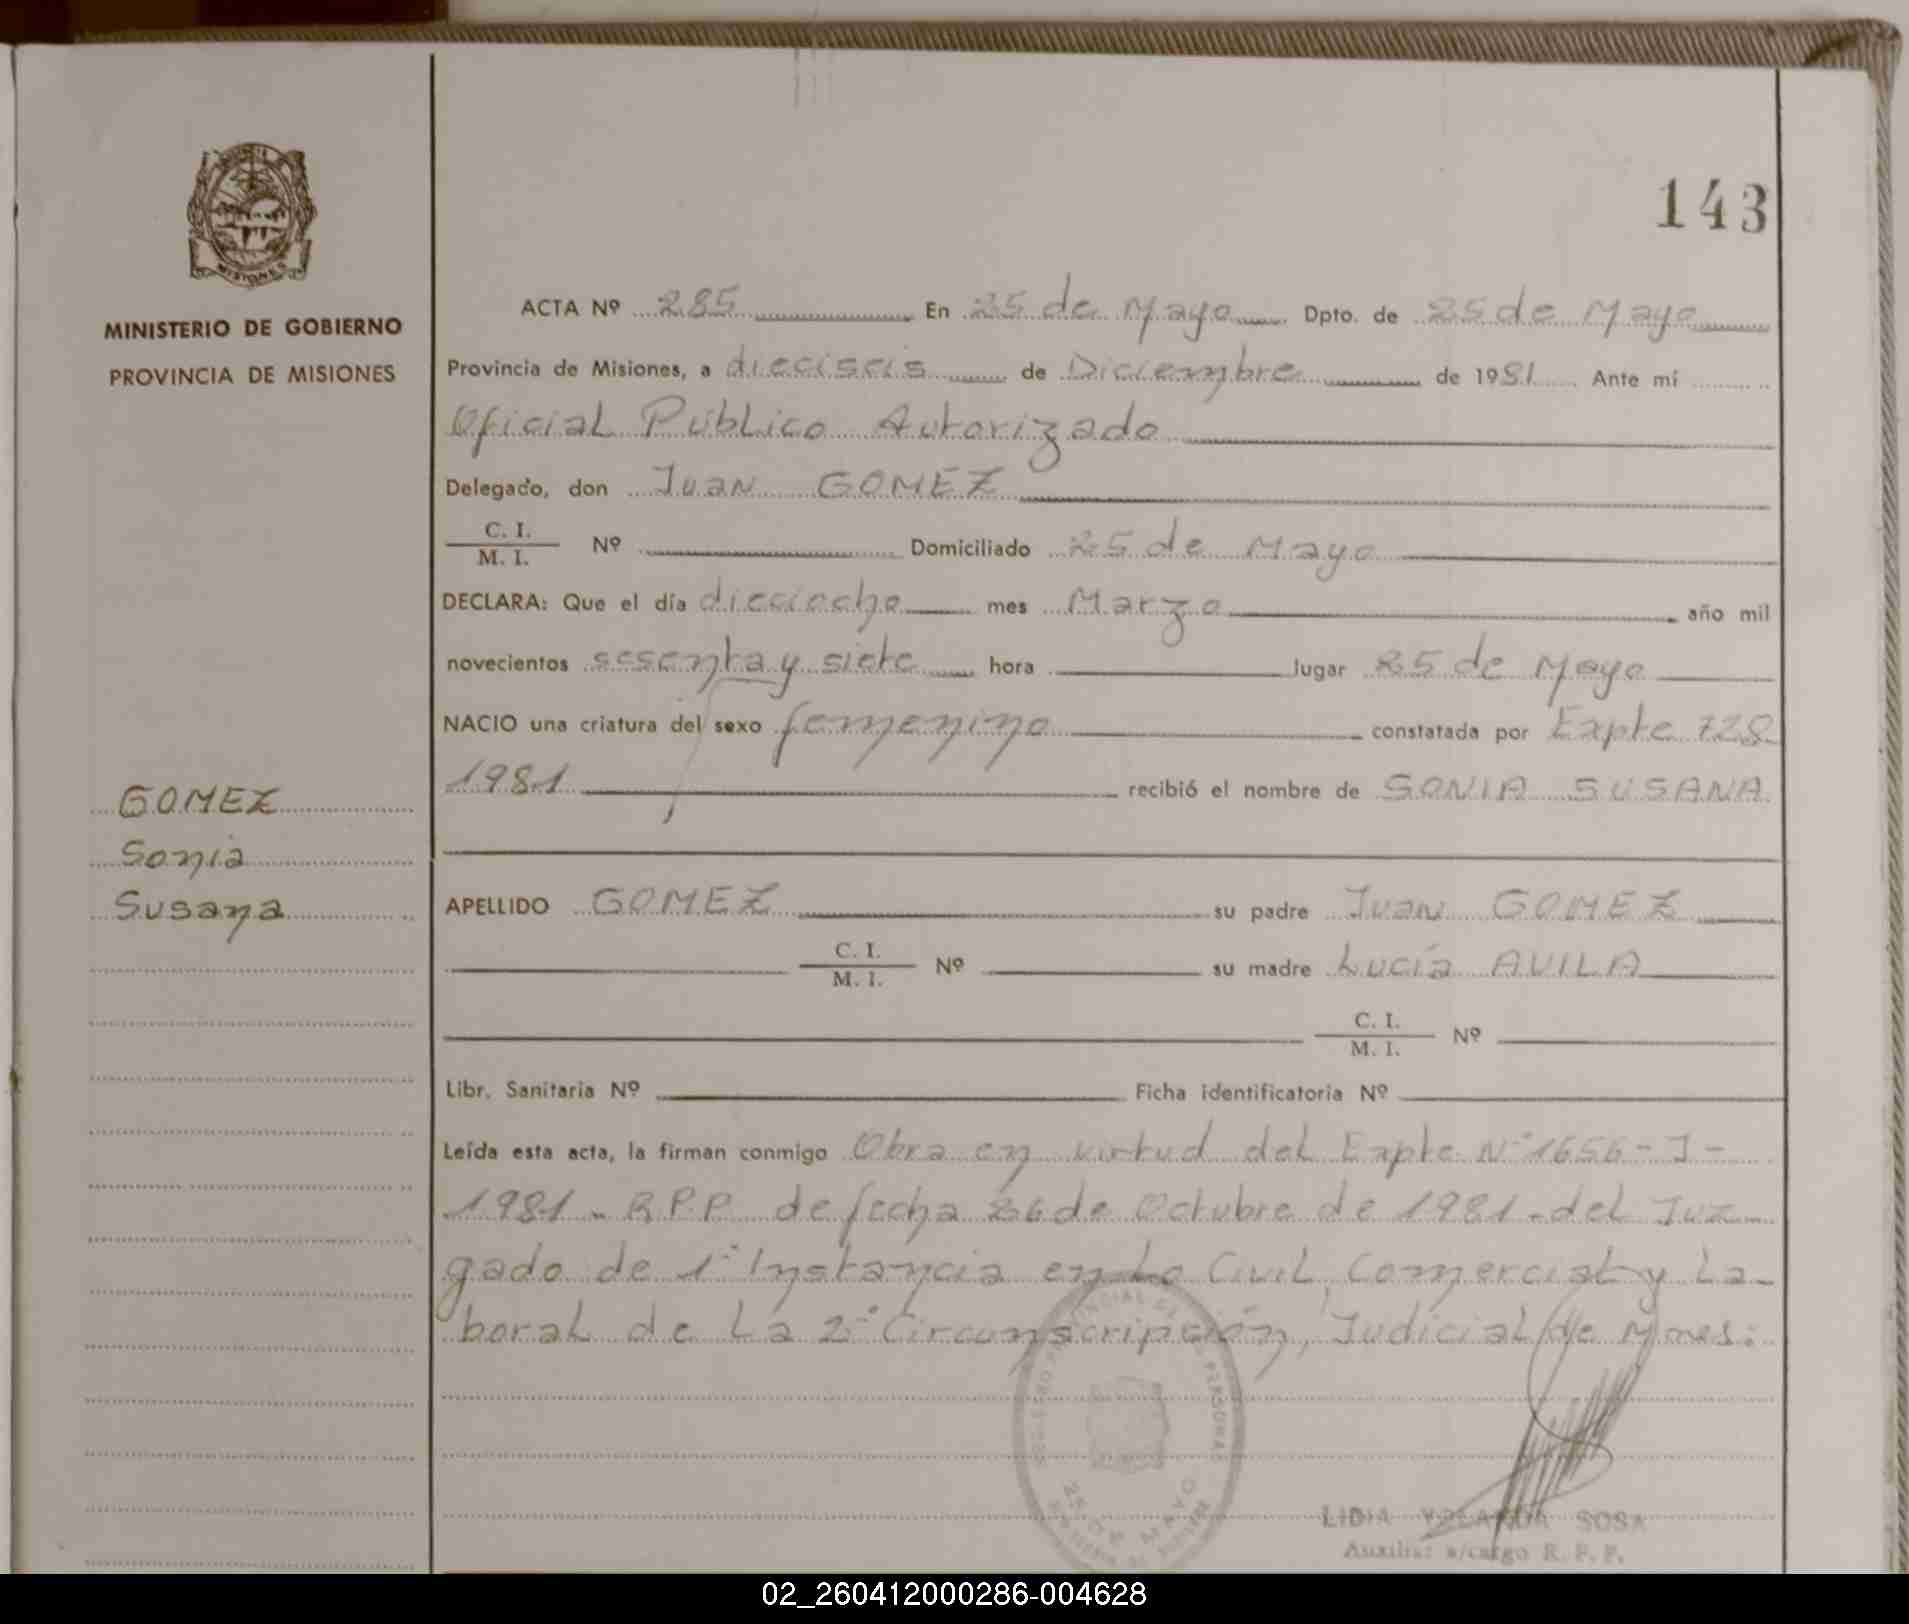 143
MINISTERIO DE GOBIERNO
PROVINCIA DE MISIONES
MISIONES
GOMEZ
Sonia
Susana
ACTA Nº 285 En 25 de Mayo Dpto. de 25 de Mayo
Provincia de Misiones, a dieciseis de Diciembre de 1981 Ante mí
Oficial Público Autorizado
Delegado, don Juan GOMEZ
C. I. / M. I. Nº Domiciliado 25 de Mayo
DECLARA: Que el día dieciocho mes Marzo año mil
novecientos sesenta y siete hora lugar 25 de Mayo
NACIO una criatura del sexo femenino constatada por Expte 728
1981 recibió el nombre de SONIA SUSANA
APELLIDO GOMEZ su padre Juan GOMEZ
C. I. / M. I. Nº su madre Lucía AVILA
C. I. / M. I. Nº
Libr. Sanitaria Nº Ficha identificatoria Nº
Leída esta acta, la firman conmigo Obra en virtud del Expte Nº 1656-J-
1981- R.P.P. de fecha 26 de Octubre de 1981-del Juz-
gado de 1° Instancia en Lo Civil, Comercial y La-
boral de La 2° Circunscripción, Judicial de Mnes:
25 DE MAYO
LIDIA YOLANDA SOSA
Auxiliar a/cargo R. P. P.
02_260412000286-004628